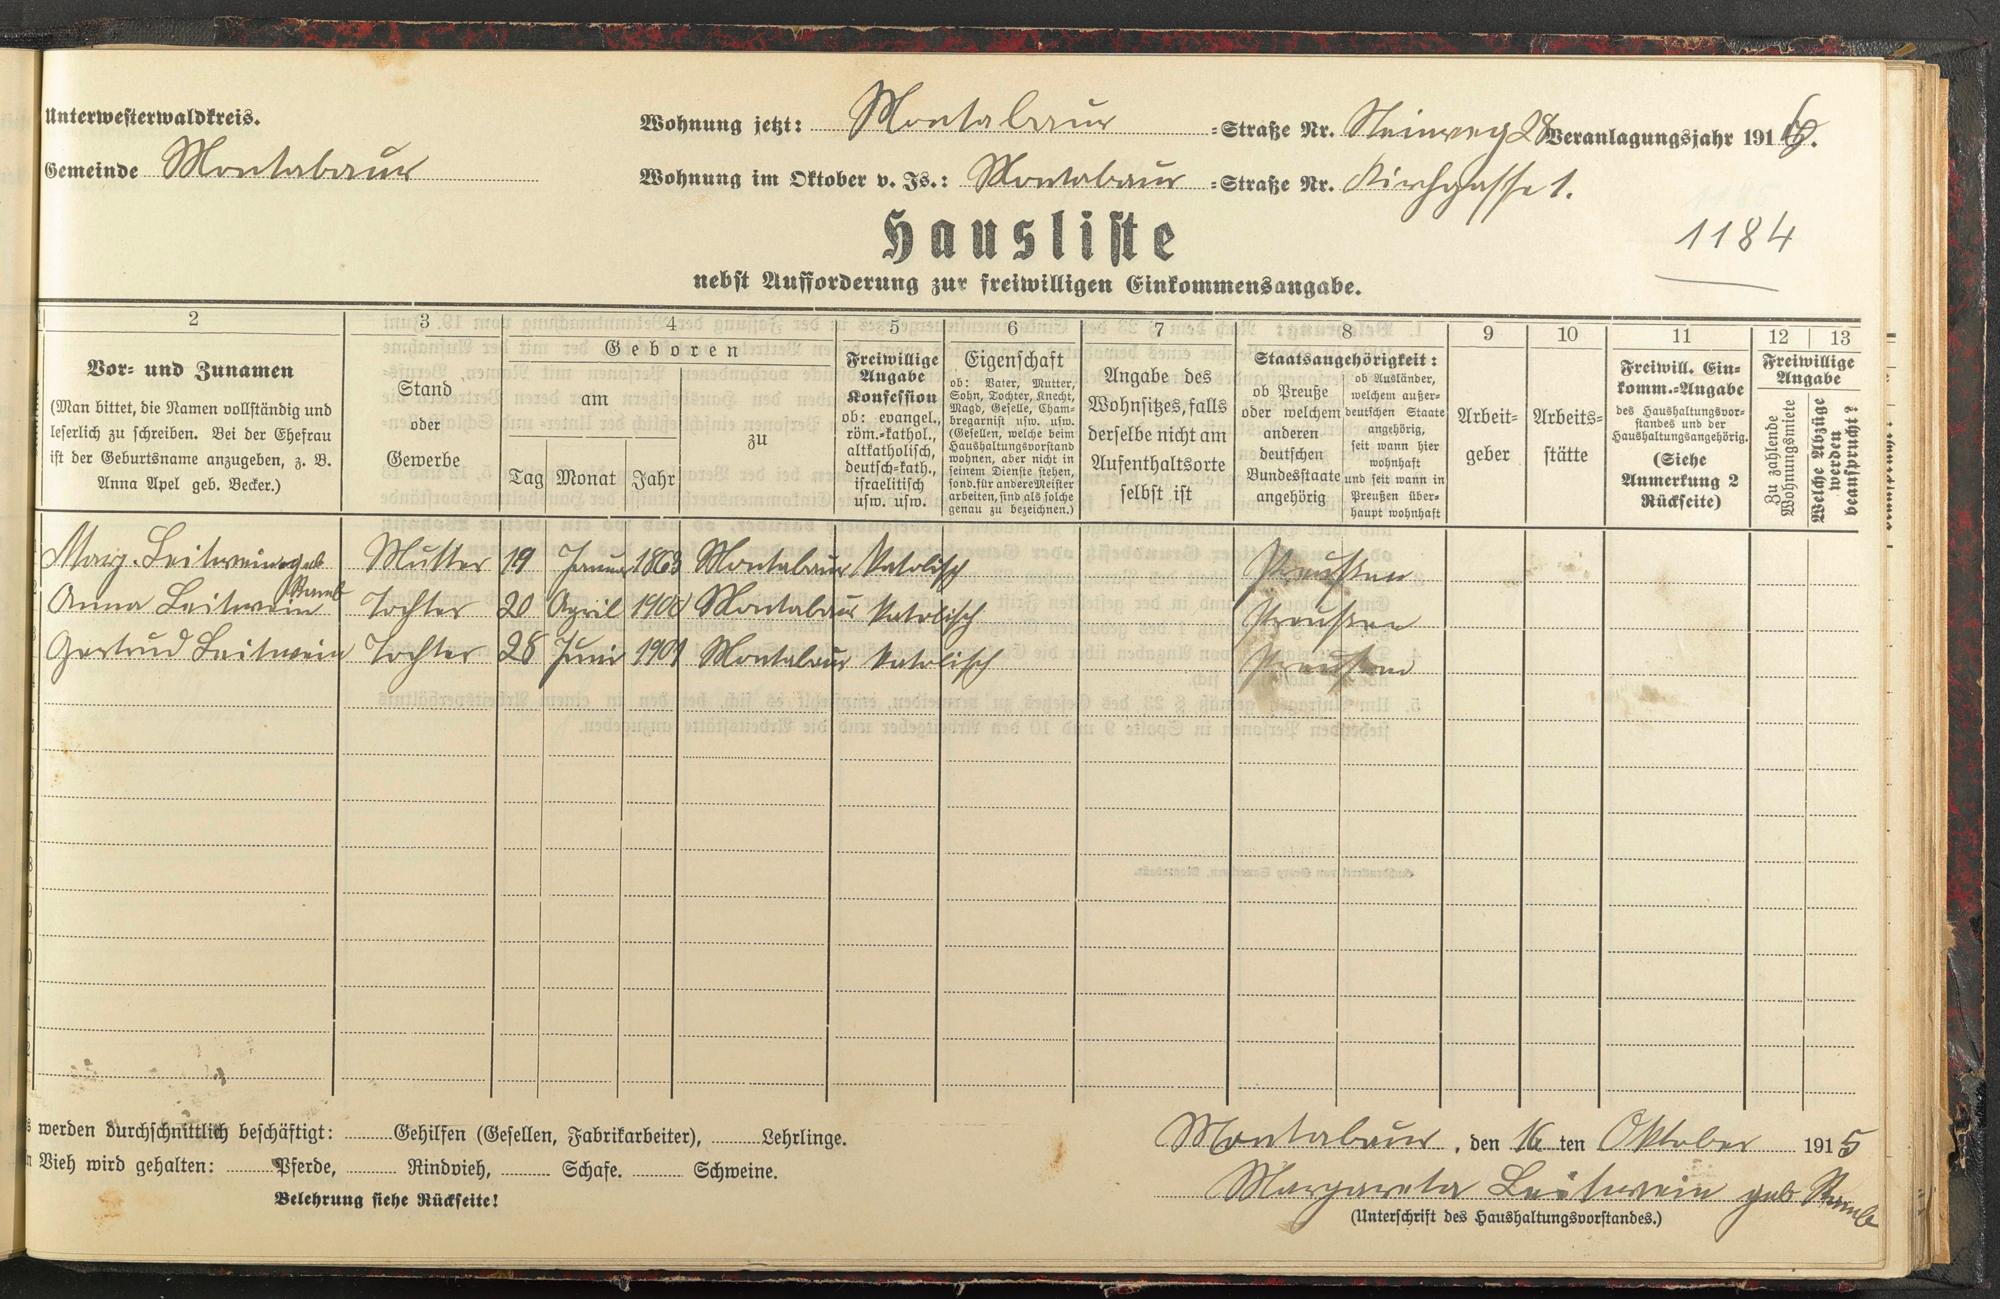 Unterwesterwaldkreis.
Gemeinde Montabaur
Wohnung jetzt: Montabaur =Straße Nr. Steinweg 28 Veranlagungsjahr 1916.
Wohnung im Oktober v. Js.: Montabaur =Straße Nr. Kirchgasse 1.
Hausliste
1184
nebst Aufforderung zur freiwilligen Einkommensangabe.
2 3 4 5 6 7 8 9 10 11 12 13
Vor- und Zunamen
(Man bittet, die Namen vollständig und
leserlich zu schreiben. Bei der Ehefrau
ist der Geburtsname anzugeben, z. B.
Anna Apel geb. Becker.)
Stand
oder
Gewerbe
Geboren
am
Tag Monat Jahr
zu
Freiwillige
Angabe
Konfession
ob: evangel.,
röm.-kathol.,
altkatholisch,
deutsch-kath.,
israelitisch
usw. usw.
Eigenschaft
ob: Vater, Mutter,
Sohn, Tochter, Knecht,
Magd, Geselle, Cham-
bregarnist usw. usw.
(Gesellen, welche beim
Haushaltungsvorstand
wohnen, aber nicht in
seinem Dienste stehen,
sond. für andere Meister
arbeiten, sind als solche
genau zu bezeichnen.)
Angabe des
Wohnsitzes, falls
derselbe nicht am
Aufenthaltsorte
selbst ist
Staatsangehörigkeit:
ob Preuße
oder welchem
anderen
deutschen
Bundesstaate
angehörig
ob Ausländer,
welchem außer-
deutschen Staate
angehörig,
seit wann hier
wohnhaft
und seit wann in
Preußen über-
haupt wohnhaft
Arbeit-
geber
Arbeits-
stätte
Freiwill. Ein-
komm.-Angabe
des Haushaltungsvor-
standes und der
Haushaltungsangehörig.
(Siehe
Anmerkung 2
Rückseite)
Freiwillige
Angabe
Zu zahlende
Wohnungsmiete
Welche Abzüge
werden
beansprucht?
Marg. Leitwein geb Mutter 19 Januar 1863 Montabaur Katolisch Preußen
Anna Leitwein Tochter 20 April 1900 Montabaur Katolisch Preußen
Gertrud Leitwein Tochter 28 Juni 1901 Montabaur Katolisch Preußen
werden durchschnittlich beschäftigt: Gehilfen (Gesellen, Fabrikarbeiter), Lehrlinge.
Vieh wird gehalten: Pferde, Rindvieh, Schafe. Schweine.
Belehrung siehe Rückseite!
Montabaur, den 16 ten Oktober 1915
Margareta Leitwein geb
(Unterschrift des Haushaltungsvorstandes.)